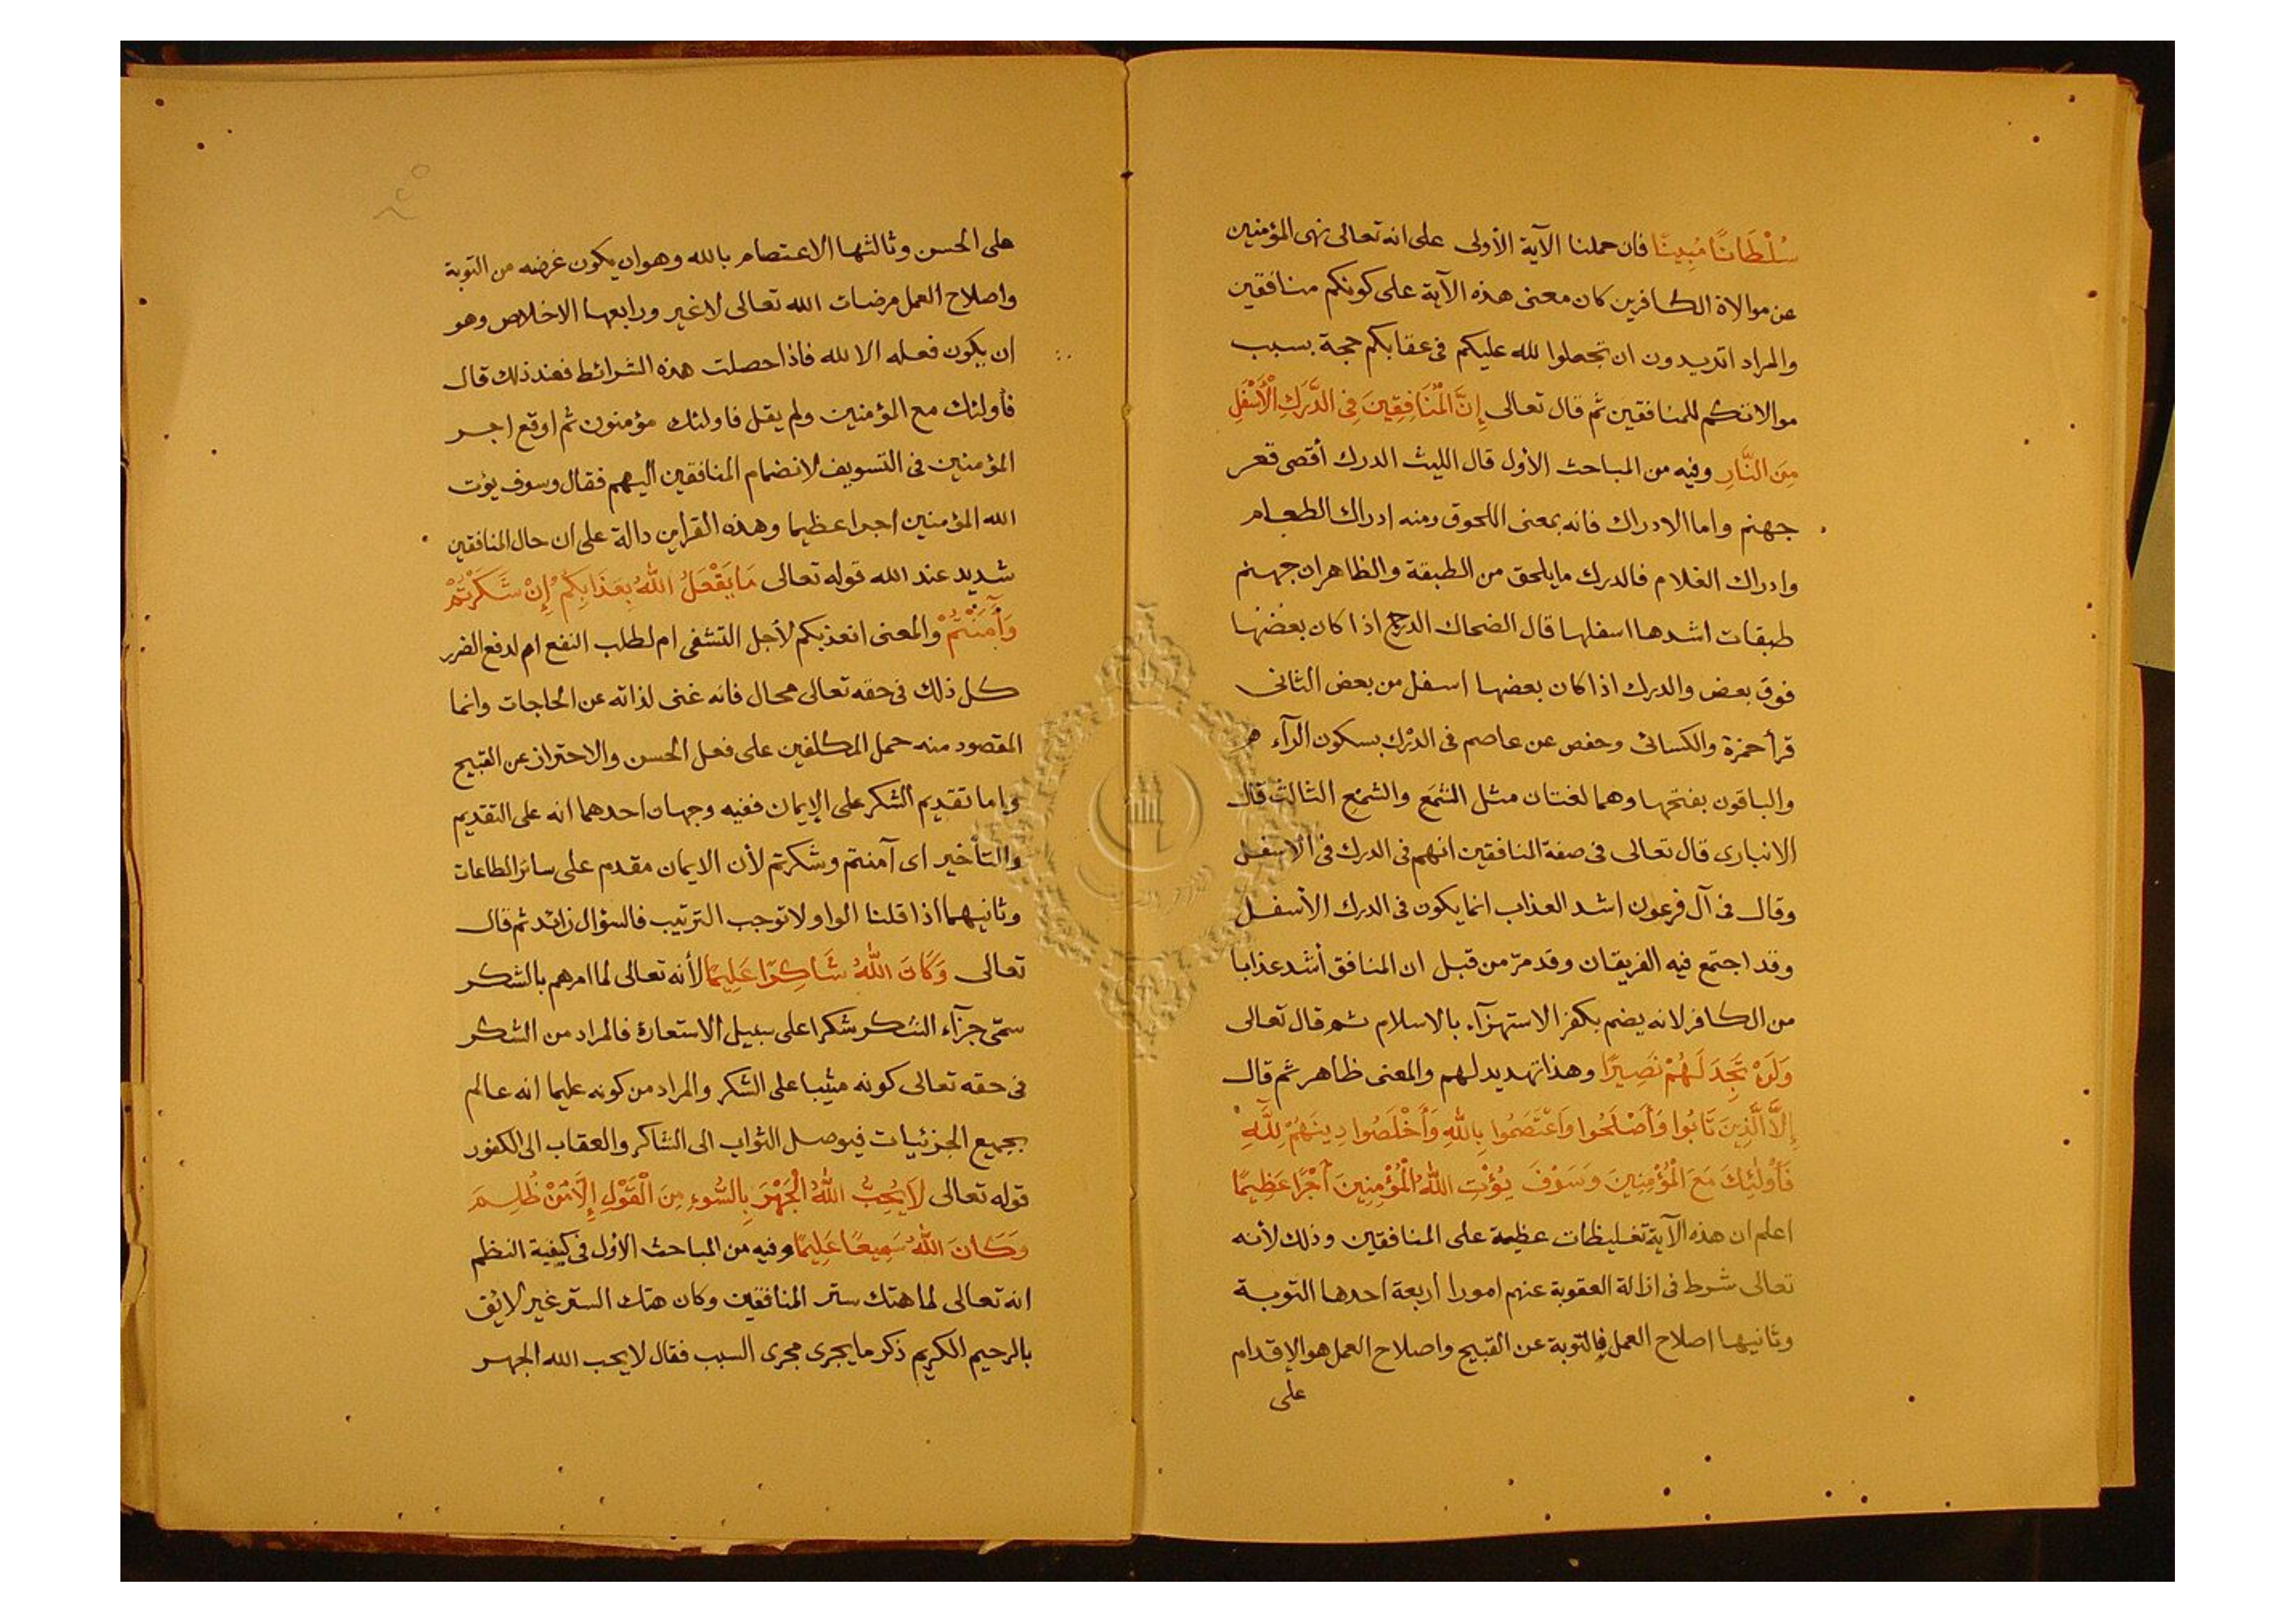 سُلْطَانًا مُبِينًا فان حملنا الآية الأولى على انه تعالى نهى المؤمنين
عن موالاة الكافرين كان معنى هذه الآية على كونكم منافقين
والمراد اتريدون ان تجعلوا لله عليكم فى عقابكم حجة بسبب
موالاتكم للمنافقين ثم قال تعالى إِنَّ الْمُنَافِقِينَ فِى الدَّرَكِ الْأَسْفَلِ
مِنَ النَّارِ وفيه من المباحث الأول قال الليث الدرك أقصى قعر
جهنم واما الادراك فانه بمعنى اللحوق ومنه ادراك الطعام
وادراك الغلام فالدرك مايلحق من الطبقة والظاهر ان جهنم
طبقات اشدها اسفلها قال الضحاك الدرج اذا كان بعضها
فوق بعض والدرك اذا كان بعضها اسفل من بعض الثانى
قرأ حمزة والكسائى وحفص عن عاصم فى الدرْك بسكون الرآء
والباقون بفتحها وهما لغتان مثل الشمَع والشمْع الثالث قال
الانبارى قال تعالى فى صفة المنافقين انهم فى الدرك فى الاسفل
وقال فى آل فرعون اشد العذاب انما يكون فى الدرك الأسفل
وقد اجتمع فيه الفريقان وقد مرّ من قبل ان المنافق أشد عذابا
من الكافر لانه يضم بكفر الاستهزآء بالاسلام ثم قال تعالى
وَلَنْ تَجِدَ لَهُمْ نَصِيرًا وهذا تهديد لهم والمعنى ظاهر ثم قال
إِلَّا الَّذِينَ تَابُوا وَأَصْلَحُوا وَاعْتَصَمُوا بِاللَّهِ وَأَخْلَصُوا دِينَهُمْ لِلَّهِ
فَأُولَئِكَ مَعَ الْمُؤْمِنِينَ وَسَوْفَ يُؤْتِ اللَّهُ الْمُؤْمِنِينَ أَجْرًا عَظِيمًا
اعلم ان هذه الآية تغليظات عظيمة على المنافقين وذلك لأنه
تعالى شرط فى ازالة العقوبة عنهم امورا اربعة احدها التوبة
وثانيها اصلاح العمل فالتوبة عن القبيح واصلاح العمل هو الإقدام
على
على الحسن وثالثها الاعتصام بالله وهو ان يكون غرضه من التوبة
واصلاح العمل مرضات الله تعالى لا غير ورابعها الاخلاص وهو
ان يكون فعله الا لله فاذا حصلت هذه الشرائط فعند ذلك قال
فأولئك مع المؤمنين ولم يقل فاولئك مؤمنون ثم اوقع اجر
المؤمنين فى التسويف لانضمام المنافقين اليهم فقال وسوف يؤت
الله المؤمنين اجرا عظيما وهذه القراين دالة على ان حال المنافقين
شديد عند الله قوله تعالى مَا يَفْعَلُ اللَّهُ بِعَذَابِكُمْ إِنْ شَكَرْتُمْ
وَآمَنْتُمْ والمعنى انعذبكم لأجل التشفى ام لطلب النفع ام لدفع الضرر
كل ذلك فى حقه تعالى محال فانه غنى لذاته عن الحاجات وانما
المقصود منه حمل المكلفين على فعل الحسن والاحتراز عن القبيح
واما تقديم الشكر على الإيمان ففيه وجهان احدهما انه على التقديم
والتأخير اى آمنتم وشكرتم لأن الايمان مقدم على سائر الطاعات
وثانيهما اذا قلنا الواو لا توجب الترتيب فالسؤال زائد ثم قال
تعالى وَكَانَ اللَّهُ شَاكِرًا عَلِيمًا لأنه تعالى لما امرهم بالشكر
سمّى جزآء الشكر شكرا على سبيل الاستعارة فالمراد من الشكر
فى حقه تعالى كونه مثيبا على الشكر والمراد من كونه عليما انه عالم
بجميع الجزئيات فيوصل الثواب الى الشاكر والعقاب الى الكفور
قوله تعالى لَا يُحِبُّ اللَّهُ الْجَهْرَ بِالسُّوءِ مِنَ الْقَوْلِ إِلَّا مَنْ ظُلِمَ
وَكَانَ اللَّهُ سَمِيعًا عَلِيمًا وفيه من المباحث الأول فى كيفية النظم
انه تعالى لما هتك ستر المنافقين وكان هتك الستر غير لائق
بالرحيم الكريم ذكر ما يجرى مجرى السبب فقال لا يحب الله الجهر